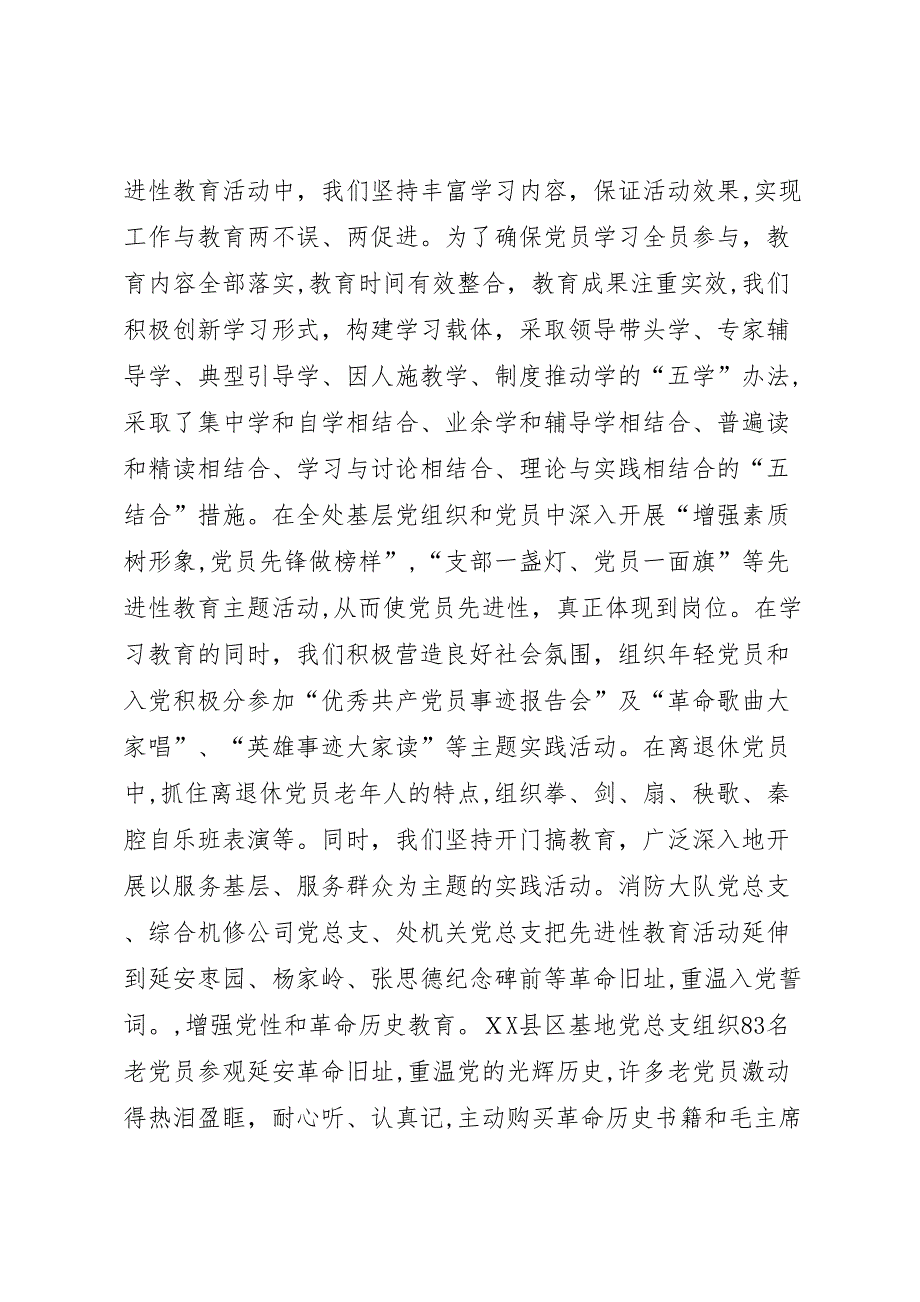 进性教育活动中，我们坚持丰富学习内容，保证活动效果,实现
工作与教育两不误、两促进。为了确保党员学习全员参与，教
育内容全部落实,教育时间有效整合，教育成果注重实效,我们
积极创新学习形式，构建学习载体，采取领导带头学、专家辅
导学、典型引导学、因人施教学、制度推动学的“五学”办法,
采取了集中学和自学相结合、业余学和辅导学相结合、普遍读
和精读相结合、学习与讨论相结合、理论与实践相结合的“五
结合”措施。在全处基层党组织和党员中深入开展“增强素质
树形象,党员先锋做榜样”,“支部一盏灯、党员一面旗”等先
进性教育主题活动,从而使党员先进性，真正体现到岗位。在学
习教育的同时，我们积极营造良好社会氛围，组织年轻党员和
入党积极分参加“优秀共产党员事迹报告会”及“革命歌曲大
家唱”、“英雄事迹大家读”等主题实践活动。在离退休党员
中,抓住离退休党员老年人的特点,组织拳、剑、扇、秧歌、秦
腔自乐班表演等。同时，我们坚持开门搞教育，广泛深入地开
展以服务基层、服务群众为主题的实践活动。消防大队党总支
、综合机修公司党总支、处机关党总支把先进性教育活动延伸
到延安枣园、杨家岭、张思德纪念碑前等革命旧址,重温入党誓
词。,增强党性和革命历史教育。XX县区基地党总支组织83名
老党员参观延安革命旧址,重温党的光辉历史,许多老党员激动
得热泪盈眶，耐心听、认真记,主动购买革命历史书籍和毛主席